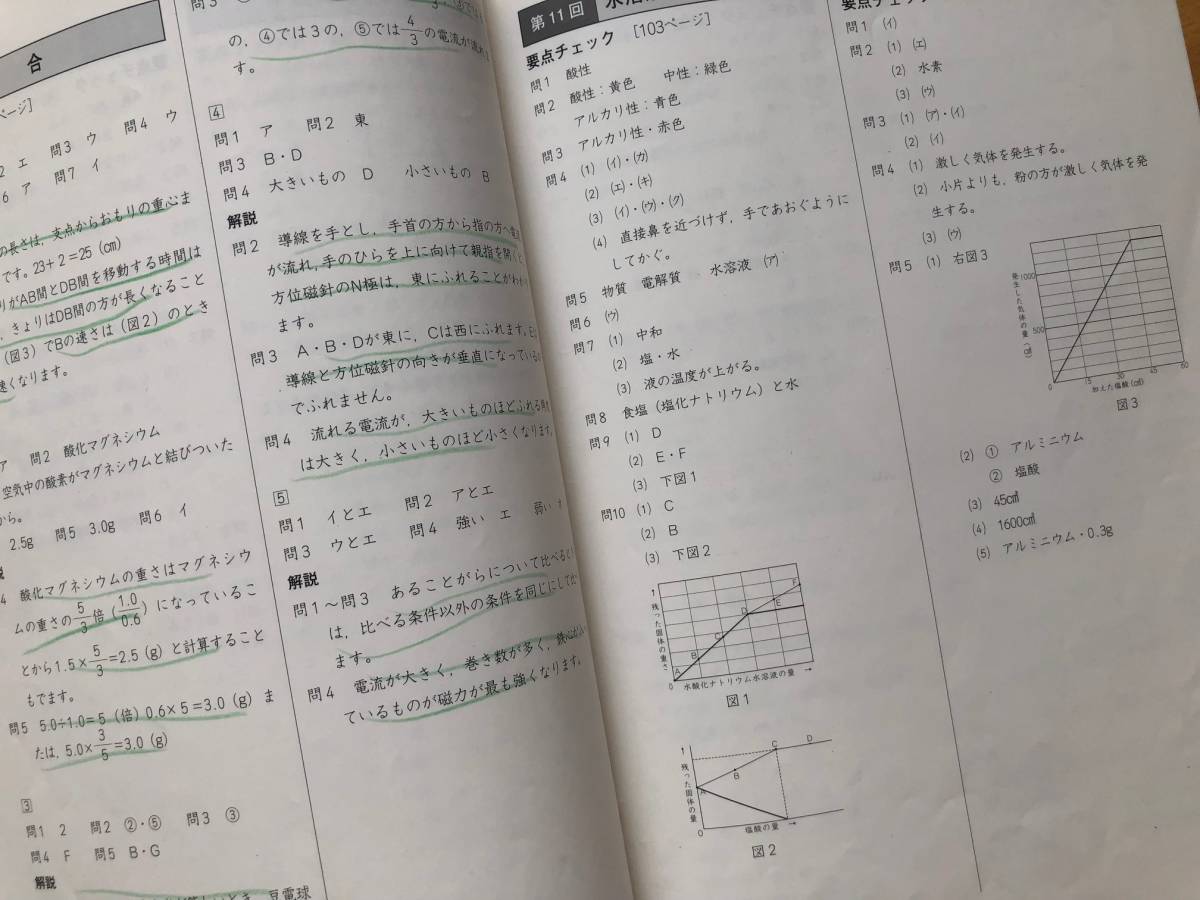 合
ページ]
2 エ 問3 ウ 問4 ウ
6 ア 問7 イ
の長さは，支点からおもりの重心ま
です。23＋2＝25（cm）
がAB間とDB間を移動する時間は
，きょりはDB間の方が長くなること
（図3）でBの速さは（図2）のとき
速くなります。
ア 問2 酸化マグネシウム
空気中の酸素がマグネシウムと結びついた
から。
2.5g 問5 3.0g 問6 イ
4 酸化マグネシウムの重さはマグネシウ
ムの重さの5/3倍（1.0/0.6）になっているこ
とから1.5×5/3＝2.5（g）と計算すること
もできます。
問5 5.0÷1.0＝5（倍）0.6×5＝3.0（g）ま
たは，5.0×3/5＝3.0（g）
3
問1 2 問2 ②・⑤ 問3 ③
問4 F 問5 B・G
解説
豆電球
問3
の，④では3の，⑤では4/3の電流が流れ
す。
4
問1 ア 問2 東
問3 B・D
問4 大きいもの D 小さいもの B
解説
問2 導線を手とし，手首の方から指の方へ電
が流れ，手のひらを上に向けて親指を開くと
方位磁針のN極は，東にふれることがわか
ます。
問3 A・B・Dが東に，Cは西にふれます。
導線と方位磁針の向きが垂直になっている
でふれません。
問4 流れる電流が，大きいものほどふれる角
は大きく，小さいものほど小さくなります。
5
問1 イとエ 問2 アとエ
問3 ウとエ 問4 強い エ 弱い
解説
問1～問3 あることがらについて比べる
は，比べる条件以外の条件を同じにして比
ます。
問4 電流が大きく，巻き数が多く，鉄心が
ているものが磁力が最も強くなります。
第11回
要点チェック [103ページ]
問1 酸性
問2 酸性：黄色 中性：緑色
アルカリ性：青色
問3 アルカリ性・赤色
問4 (1) (イ)・(カ)
(2) (エ)・(キ)
(3) (イ)・(ウ)・(ク)
(4) 直接鼻を近づけず，手であおぐように
してかぐ。
問5 物質 電解質 水溶液 (ア)
問6 (ウ)
問7 (1) 中和
(2) 塩・水
(3) 液の温度が上がる。
問8 食塩（塩化ナトリウム）と水
問9 (1) D
(2) E・F
(3) 下図1
問10 (1) C
(2) B
(3) 下図2
残った固体の重さ
A B C D E F
0 水酸化ナトリウム水溶液の量 →
図1
残った固体の量
A B C D
0 塩酸の量 →
図2
要点チェック
問1 (イ)
問2 (1) (エ)
(2) 水素
(3) (ウ)
問3 (1) (ア)・(イ)
(2) (イ)
問4 (1) 激しく気体を発生する。
(2) 小片よりも，粉の方が激しく気体を発
生する。
(3) (ウ)
問5 (1) 右図3
発生した気体の量（㎤）
1000
500
0 15 30 45 60
加えた塩酸（㎤）
図3
(2) ① アルミニウム
② 塩酸
(3) 45㎤
(4) 1600㎤
(5) アルミニウム・0.3g